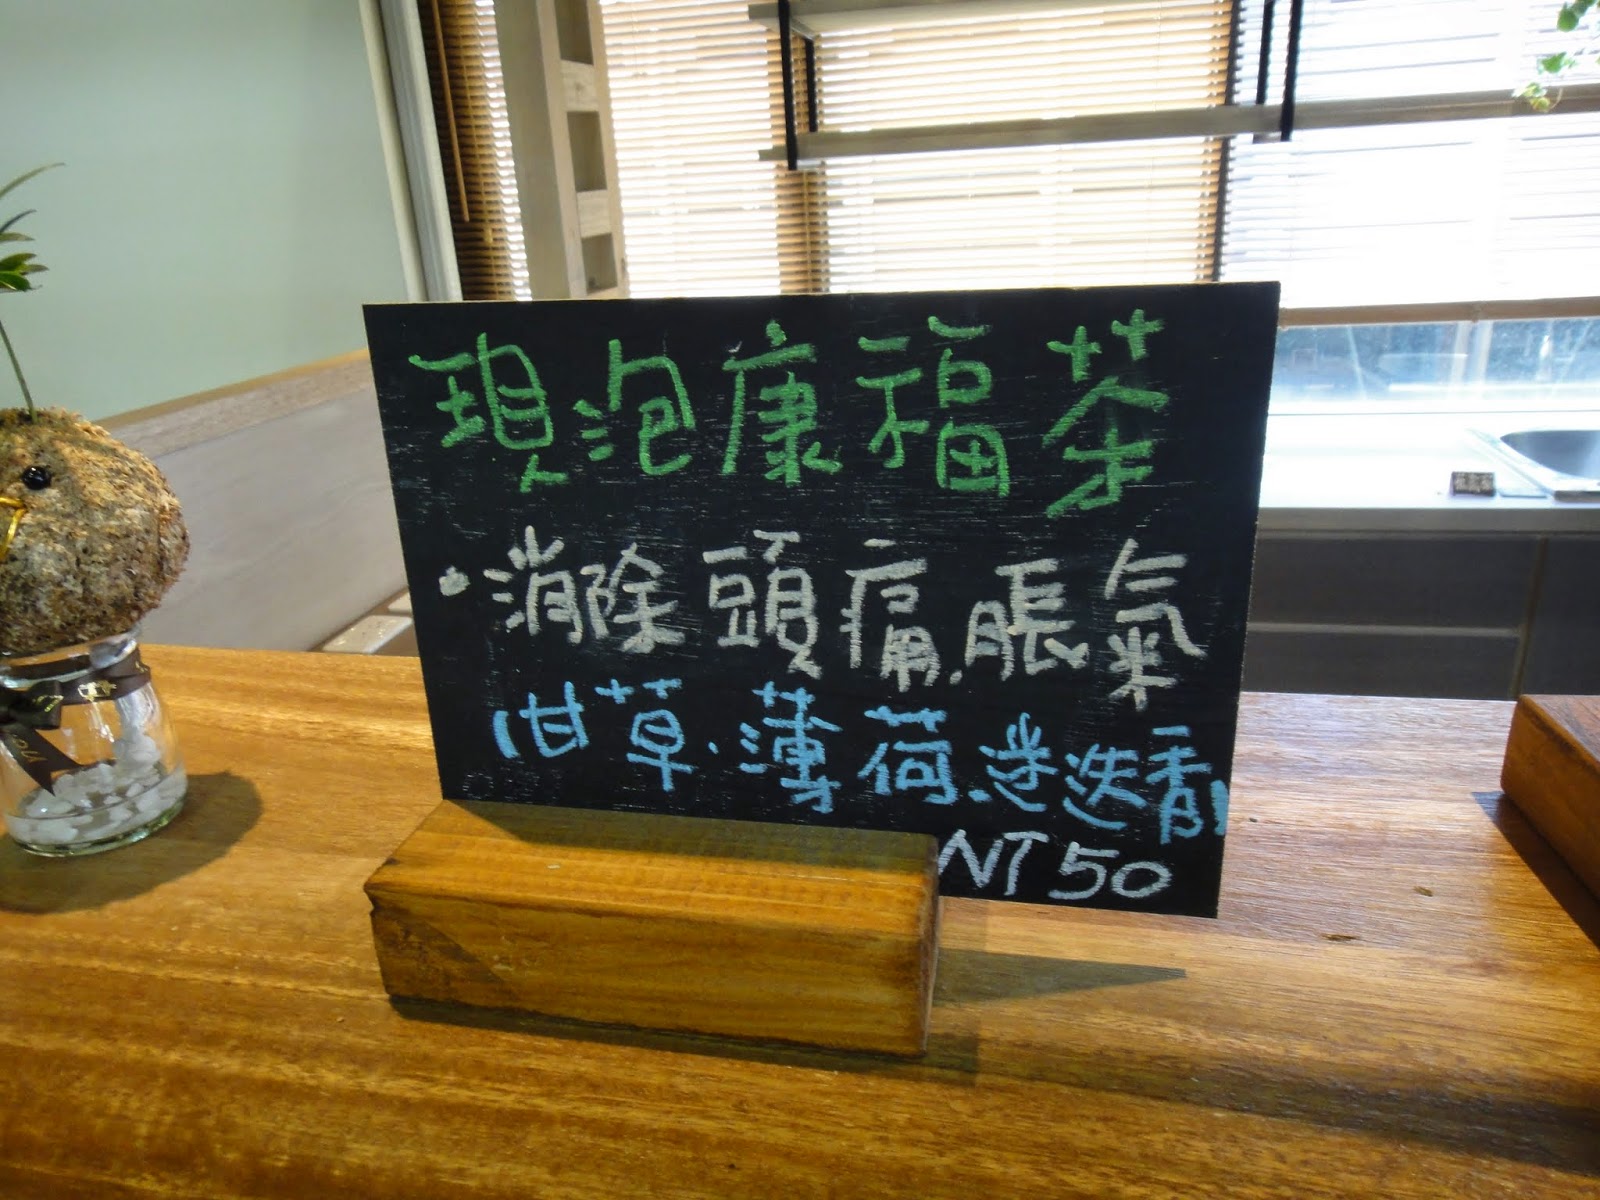 現泡康福茶
·消除頭痛.脹氣
(甘草.薄荷.迷迭香)
NT 50